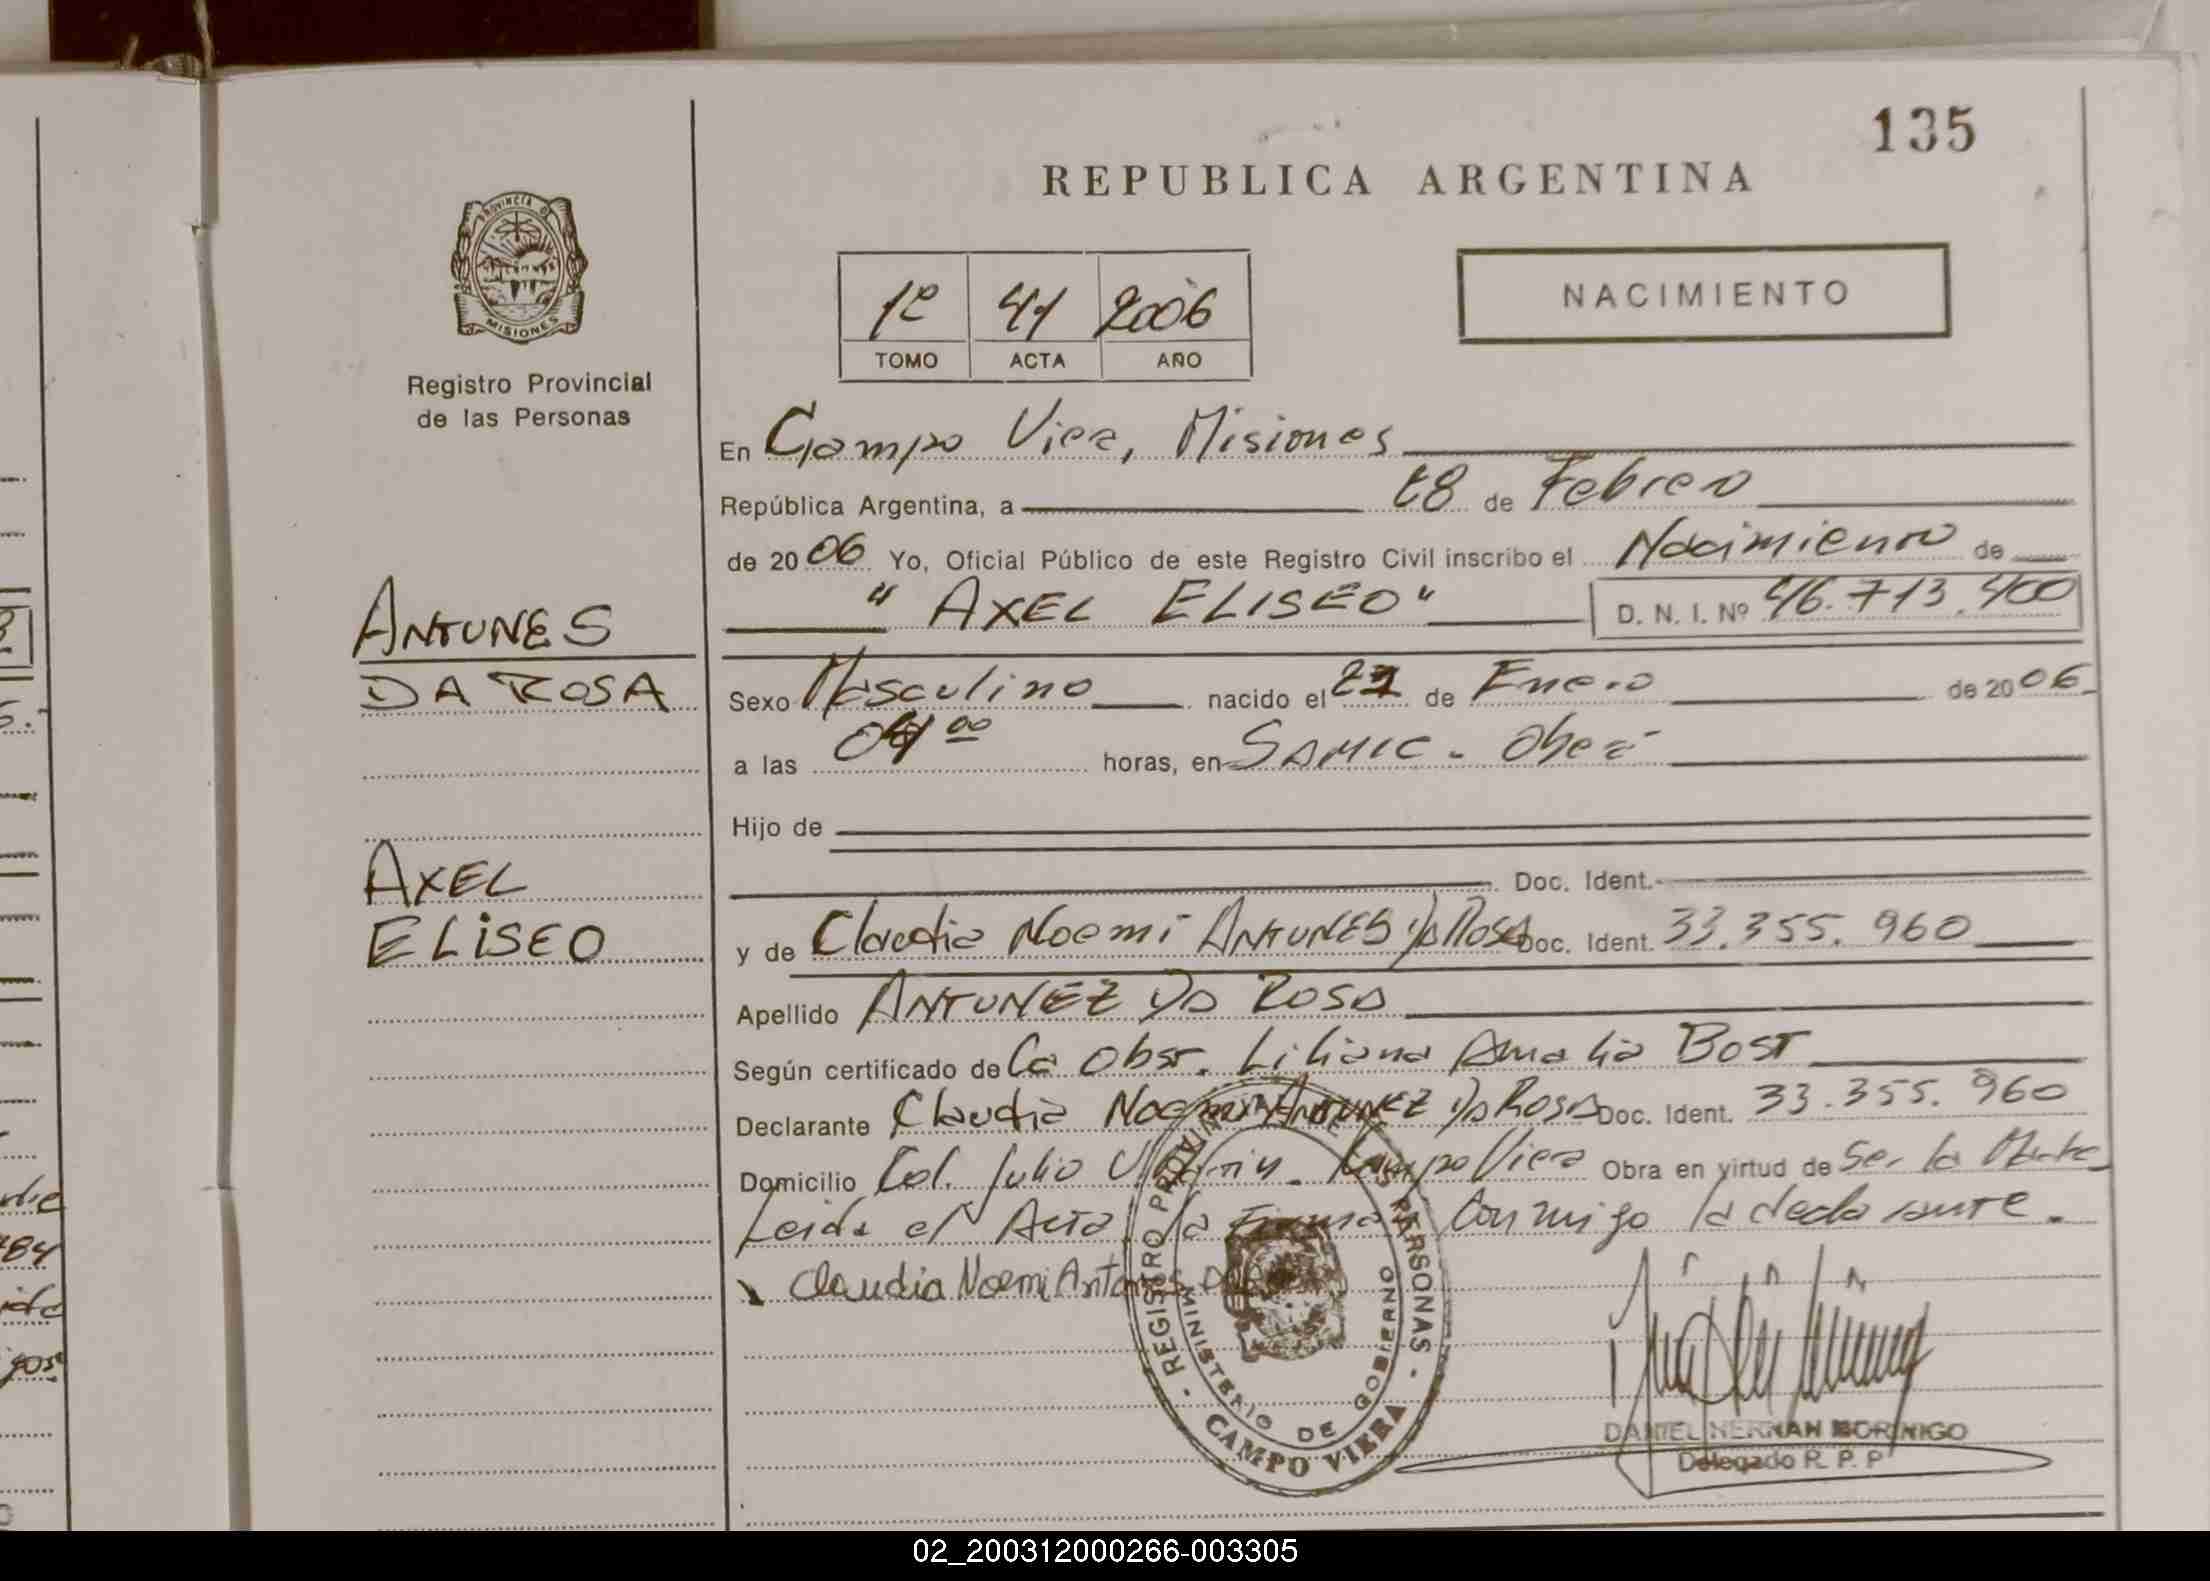 135
REPUBLICA ARGENTINA
PROVINCIA DE
MISIONES
Registro Provincial
de las Personas
1º 41 2006
TOMO ACTA AÑO
NACIMIENTO
En Campo Viera, Misiones
República Argentina, a 28 de Febrero
de 2006 Yo, Oficial Público de este Registro Civil inscribo el Nacimiento de
" AXEL ELISEO " D. N. I. Nº 46.713.400
ANTUNES
DA ROSA
Sexo Masculino nacido el de Enero de 2006
a las 04 00 horas, en SAMIC - Oberá
Hijo de
Doc. Ident.
AXEL
ELISEO
y de Claudia Noemi ANTUNES Da Rosa Doc. Ident. 33.355.960
Apellido ANTUNEZ DA ROSA
Según certificado de La Obst. Liliana Amalia BOST
Declarante Claudia Noemi ANTUNEZ DA ROSA Doc. Ident. 33.355.960
Domicilio Col. Julio U. Martin. Campo Viera Obra en virtud de Ser la Madre
Leida el Acta, la Firma Conmigo la declarante.
Claudia Noemi Antunes Da Rosa
REGISTRO PROVINCIAL DE LAS PERSONAS
MINISTERIO DE GOBIERNO
CAMPO VIERA
DANIEL HERNAN BORNIGO
Delegado R. P. P
02_200312000266-003305